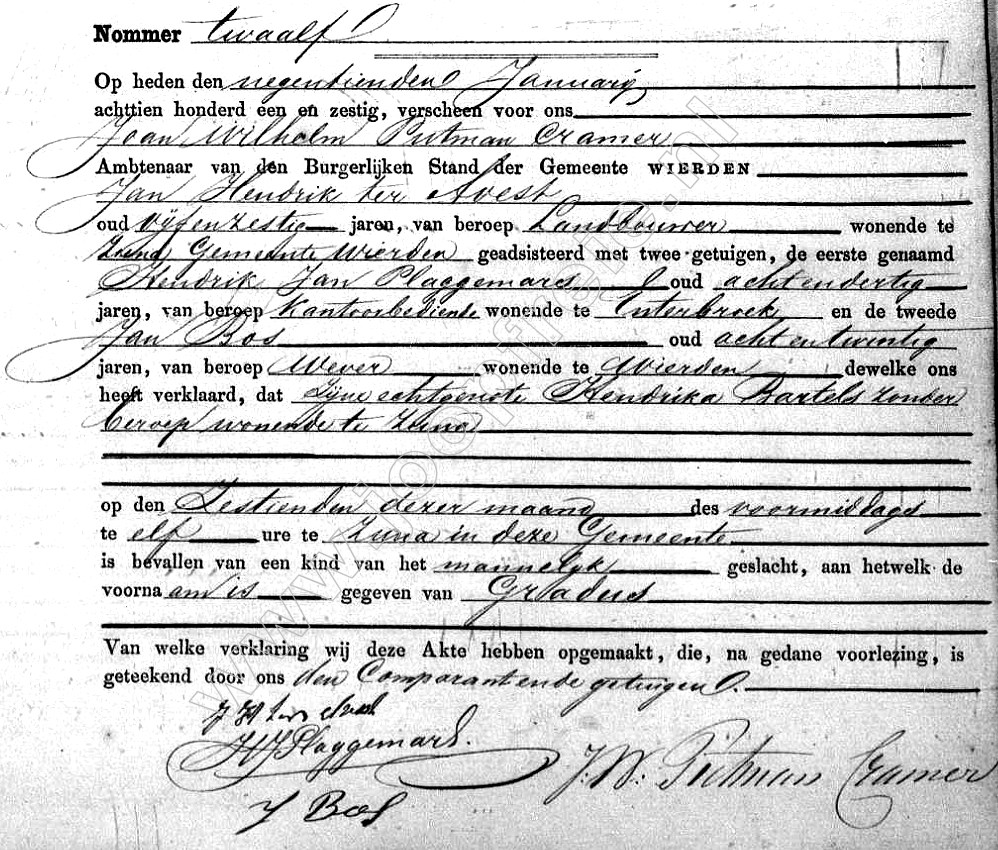 Nommer twaalf
Op heden den negentienden Januarij,
achttien honderd een en zestig, verscheen voor ons
Joan Wilhelm Putman Cramer
Ambtenaar van den Burgerlijken Stand der Gemeente WIERDEN
Jan Hendrik ter Avest
oud vijfenzestig jaren, van beroep Landbouwer wonende te
Zuna Gemeente Wierden geadsisteerd met twee getuigen, de eerste genaamd
Hendrik Jan Plaggemars oud achtendertig
jaren, van beroep Kantoorbediende wonende te Enterbroek, en de tweede
Jan Bos oud achtentwintig
jaren, van beroep Wever wonende te Wierden dewelke ons
heeft verklaard, dat Zijne echtgenote Hendrika Bartels zonder
beroep wonende te Zuna
op den Zestienden dezer maand des voormiddags
te elf ure te Zuna in deze Gemeente
is bevallen van een kind van het mannelijk geslacht, aan hetwelk de
voorna am is gegeven van Gradus
Van welke verklaring wij deze Akte hebben opgemaakt, die, na gedane voorlezing, is
geteekend door ons den Comparant en de getuigen.
J H ter Avest
HJ Plaggemars.
J. W. Putman Cramer
J Bos